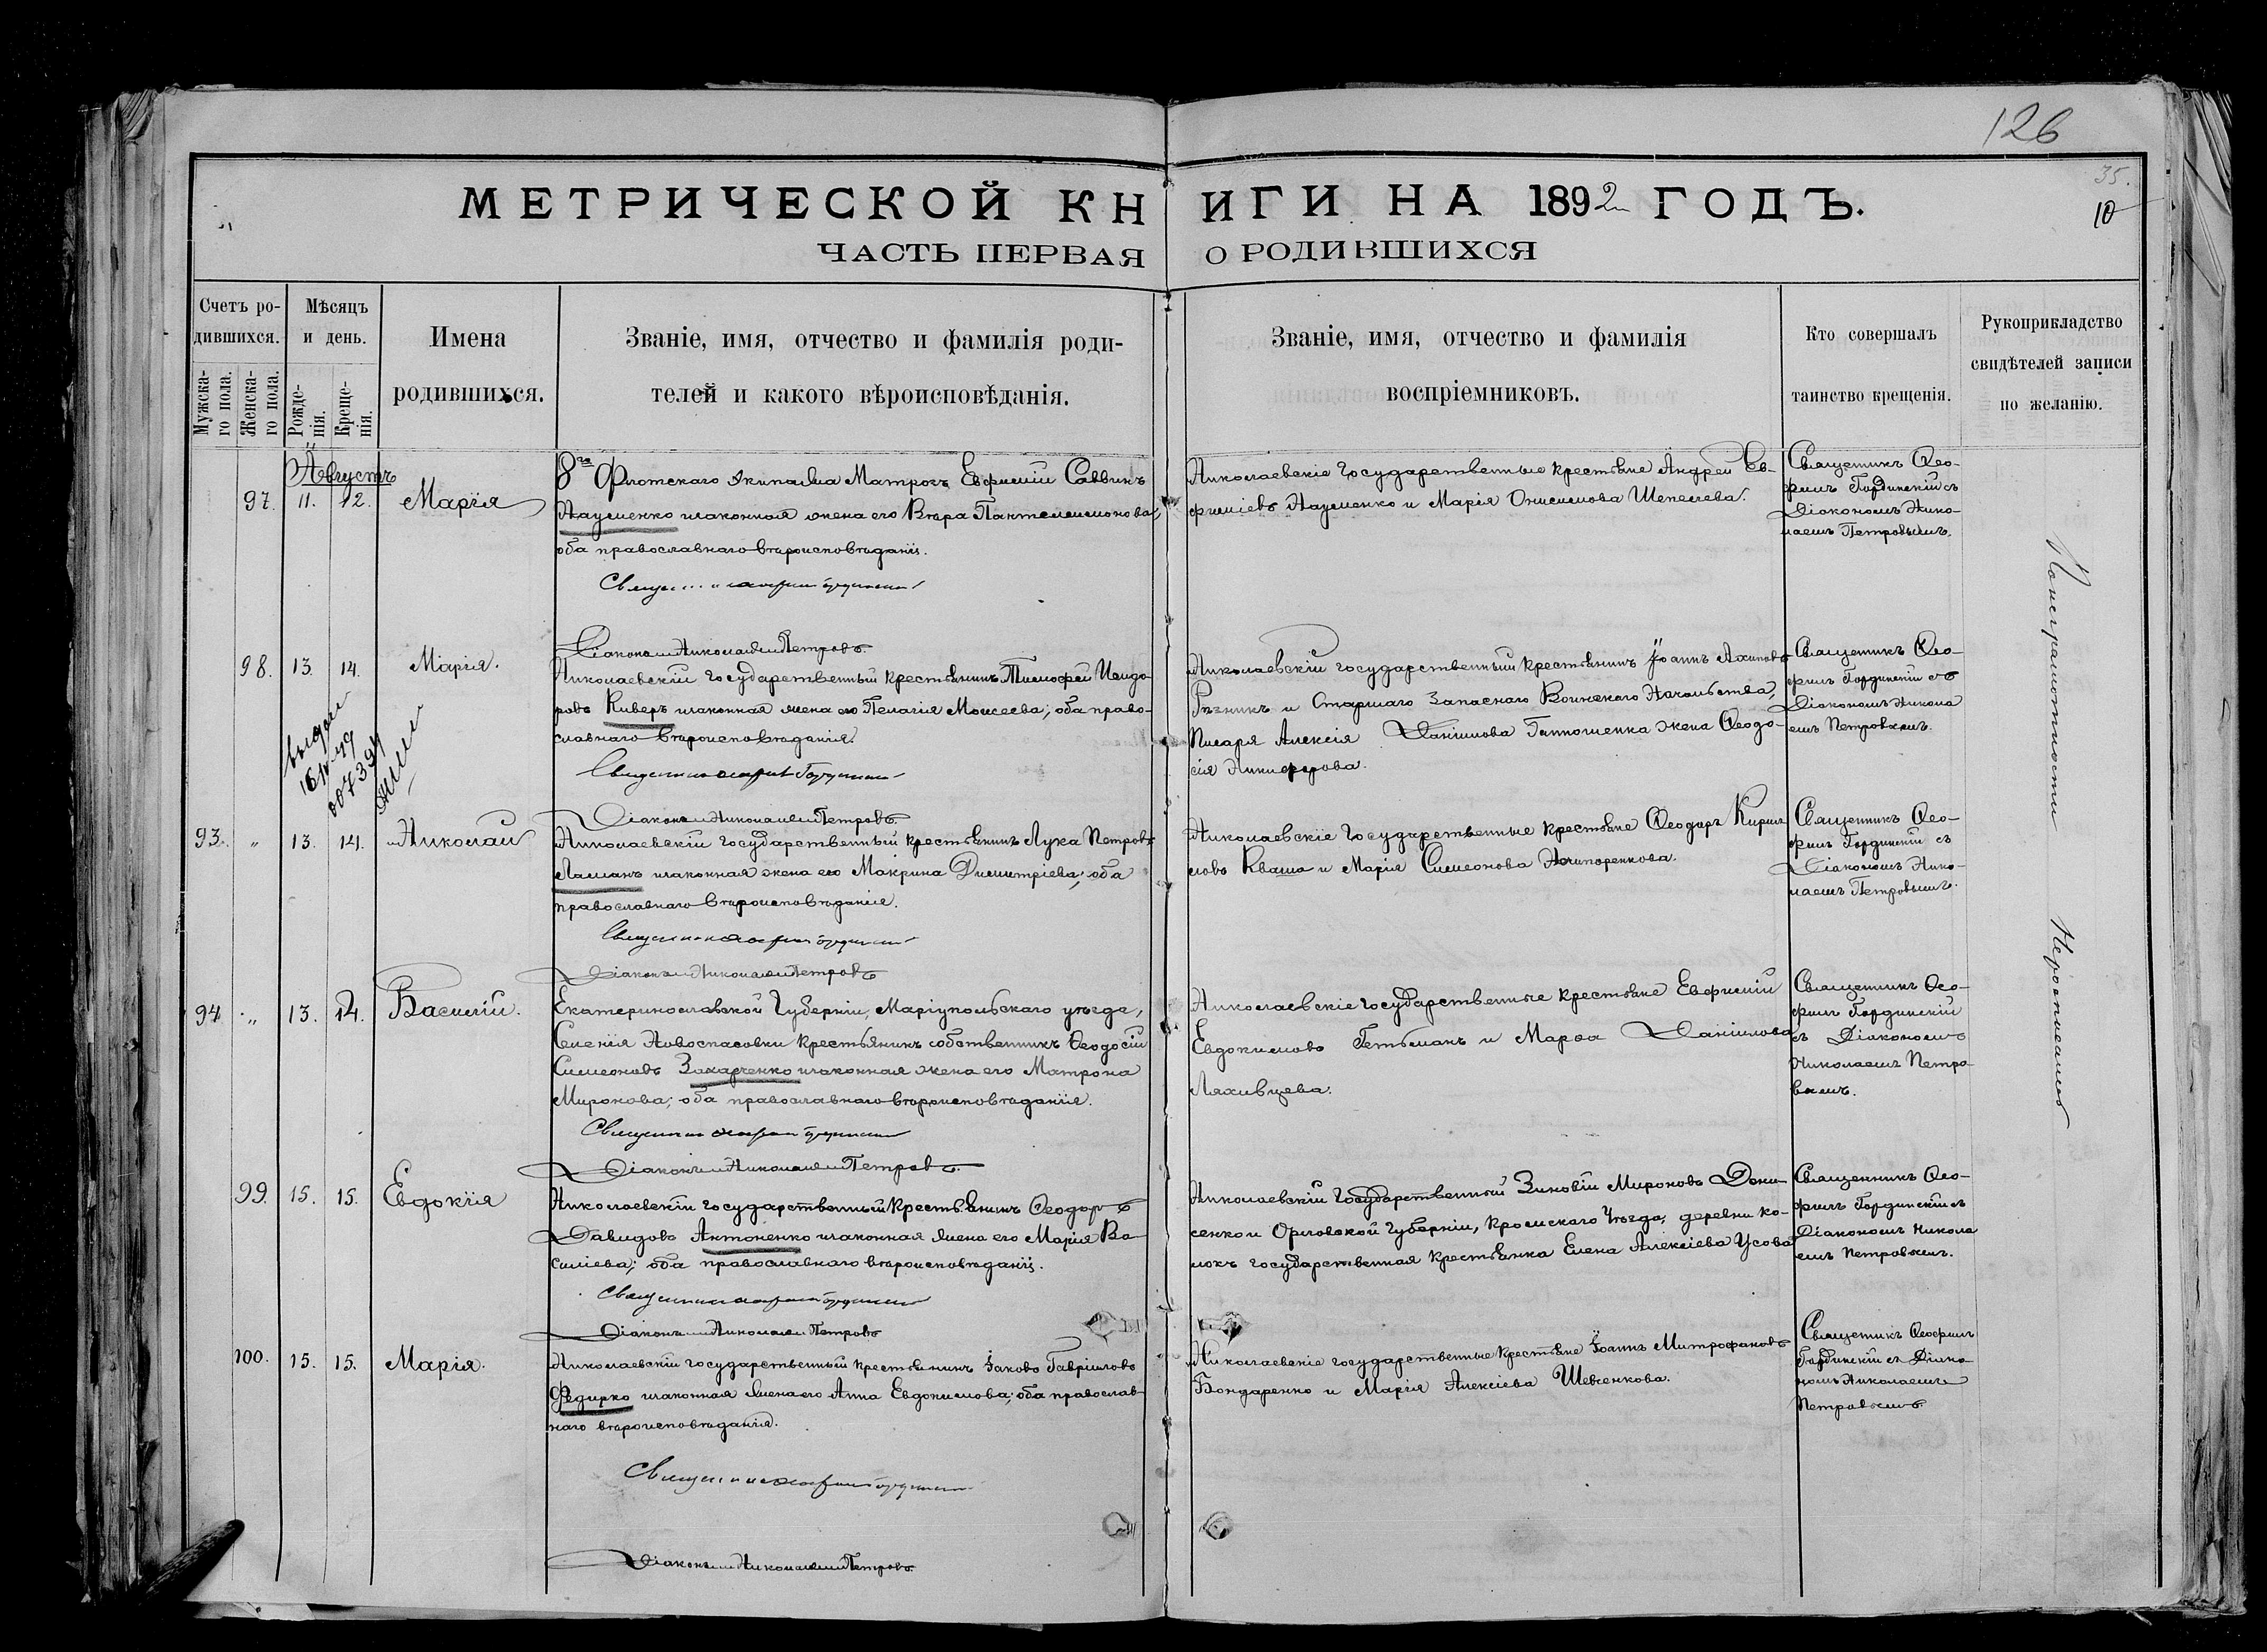 126
35.
10
МЕТРИЧЕСКОЙ КНИГИ НА 1892 ГОДЪ.
ЧАСТЬ ПЕРВАЯ О РОДИВШИХСЯ
Счетъ ро-
дившихся.
Мужска-
го пола.
Женска-
го пола.
Мѣсяцъ
и день.
Рожде-
нія.
Креще-
нія.
Имена
родившихся.
Званіе, имя, отчество и фамилія роди-
телей и какого вѣроисповѣданія.
Званіе, имя, отчество и фамилія
воспріемниковъ.
Кто совершалъ
таинство крещенія.
Рукоприкладство
свидѣтелей записи
по желанію.
Августъ
97. 11. 12. Марія
8го Флотскаго экипажа Матрось Евфимій Саввинъ
Науменко изаконная жена его Вѣра Пантелеимонова;
оба православнаго вѣроисповѣданія.
Діаконъ Николай Петровъ
Николаевскіе Государственные крестьяне Андрей Ев-
фиміевъ Науменко и Марія Онисимова Шепелева.
Священикъ Ѳео-
филъ Гординскій съ
Діакономъ Нико-
лаемъ Петровымъ.
98. 13. 14. Марія.
Николаевскій Государственный крестьянинъ Тимофей Исидо-
ровъ Киверъ изаконная жена его Пелагія Моисеева; оба право-
славнаго вѣроисповѣданія.
Діаконъ Николай Петровъ
Николаевскій государственный крестьянинъ Іоаннъ
Рѣзникъ и Старшаго Запаснаго Воинскаго Начальства,
Писаря Алексія Даніилова жена Ѳеодо-
сія Никифорова.
Священикъ Ѳео-
филъ Гординскій съ
Діакономъ Никола
емъ Петровымъ.
93. „ 13. 14. Николай
Николаевскій государственный крестьянинъ Лука Петровъ
Ламанъ изаконная жена его Макрина Димитріева; оба
православнаго вѣроисповѣданія.
Діаконъ Николай Петровъ
Николаевскіе Государственные крестьяне Ѳеодоръ Кирил-
ловъ Кваша и Марія Симеонова Нечипоренкова.
Священникъ Ѳео-
филъ Гординскій съ
Діакономъ Нико-
лаемъ Петровымъ.
94 „ 13. 14. Василій.
Екатеринославской Губерніи, Маріупольскаго уѣзда,
Селенія Новоспасовки крестьянинъ собственникъ Ѳеодосій
Симеоновъ Захарченко изаконная жена его Матрона
Миронова; оба православнаго вѣроисповѣданія.
Діаконъ Николай Петровъ.
Николаевскіе государственные крестьяне Евфимій
Евдокимовъ Гетьманъ и Марѳа Даніилова
Ляхивцева.
Священикъ Ѳео-
филъ Гординскій
съ Діакономъ
Николаемъ Петро
вымъ.
99. 15. 15. Евдокія
Николаевскій государственный крестьянинъ Ѳеодоръ
Давидовъ Антоненко изаконная жена его Марія Ва-
силіева; оба православнаго вѣроисповѣданія.
Діаконъ Николай Петровъ
Николаевскій Государственный Зиновій Мироновъ Дени-
сенко и Орловской Губерніи, Кромскаго Уѣзда, деревни Ко-
локъ государственная крестьянка Елена Алексіева Усова
Священникъ Ѳео-
филъ Гординскій съ
Діакономъ Никола
емъ Петровымъ.
100. 15. 15. Марія.
Николаевскій государственный крестьянинъ Іаковъ Гавріиловъ
Федирко изаконная жена его Анна Евдокимова; оба православ-
наго вѣроисповѣданія.
Діаконъ Николай Петровъ.
Николаевскіе государственные крестьяне Іоаннъ Митрофановъ
Бондаренко и Марія Алексіева Шевченкова.
Священикъ Ѳеофилъ
Гординскій съ Діако-
номъ Николаемъ
Петровымъ.